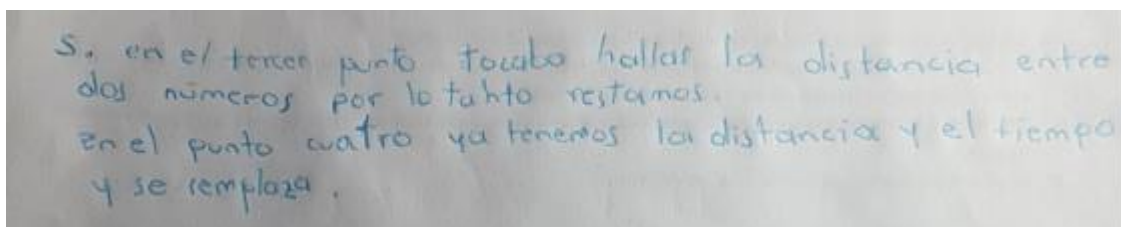 5. en el tercer punto tocabo hallar la distancia entre
dos números por lo tahto restamos.
en el punto cuatro ya tenemos la distancia y el tiempo
y se remplaza.